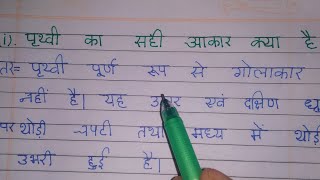 1). पृथ्वी का सही आकार क्या है
तर= पृथ्वी पूर्ण रूप से गोलाकार
नहीं है। यह उत्तर एवं दक्षिण ध्रु
पर थोड़ी चपटी तथा मध्य में थोड़
उभरी हुई है।